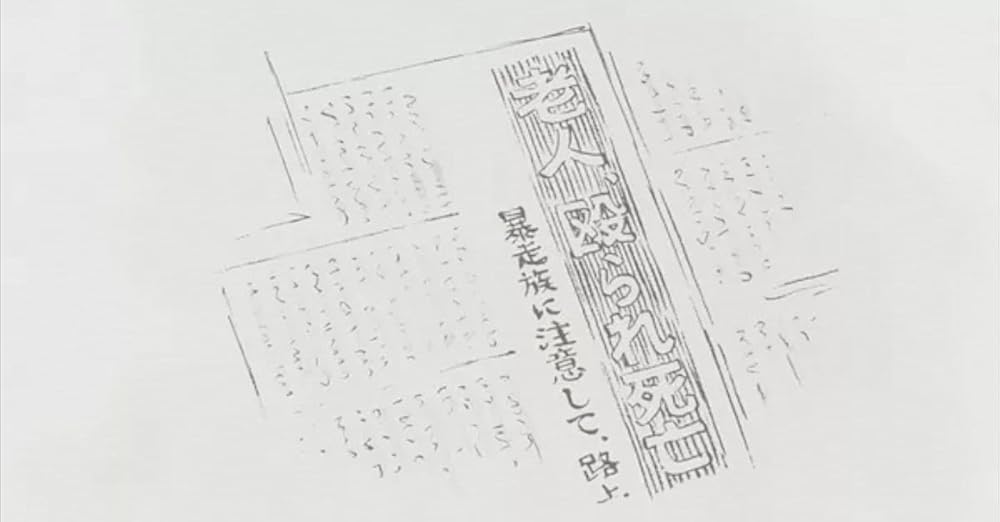 老人、殴られ死亡
暴走族に注意して、路上、